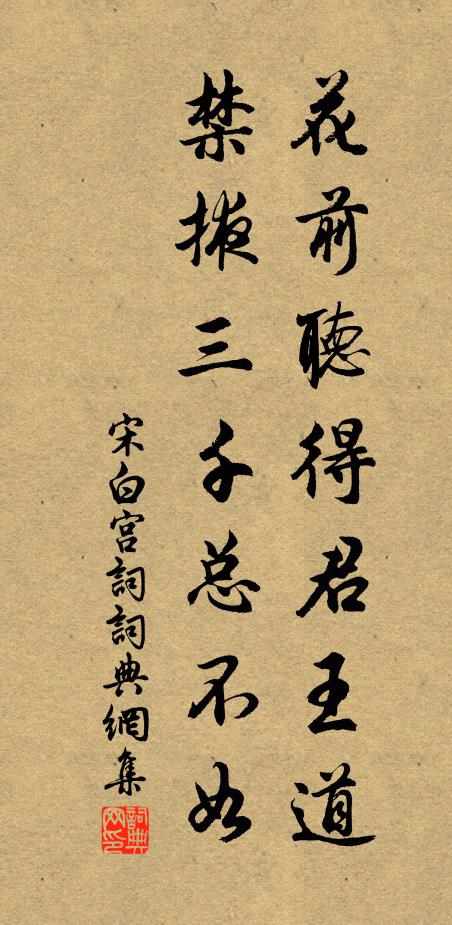 花前聽得君王道
禁掖三千总不如
宋白宮詞詞典網集
詞典網印